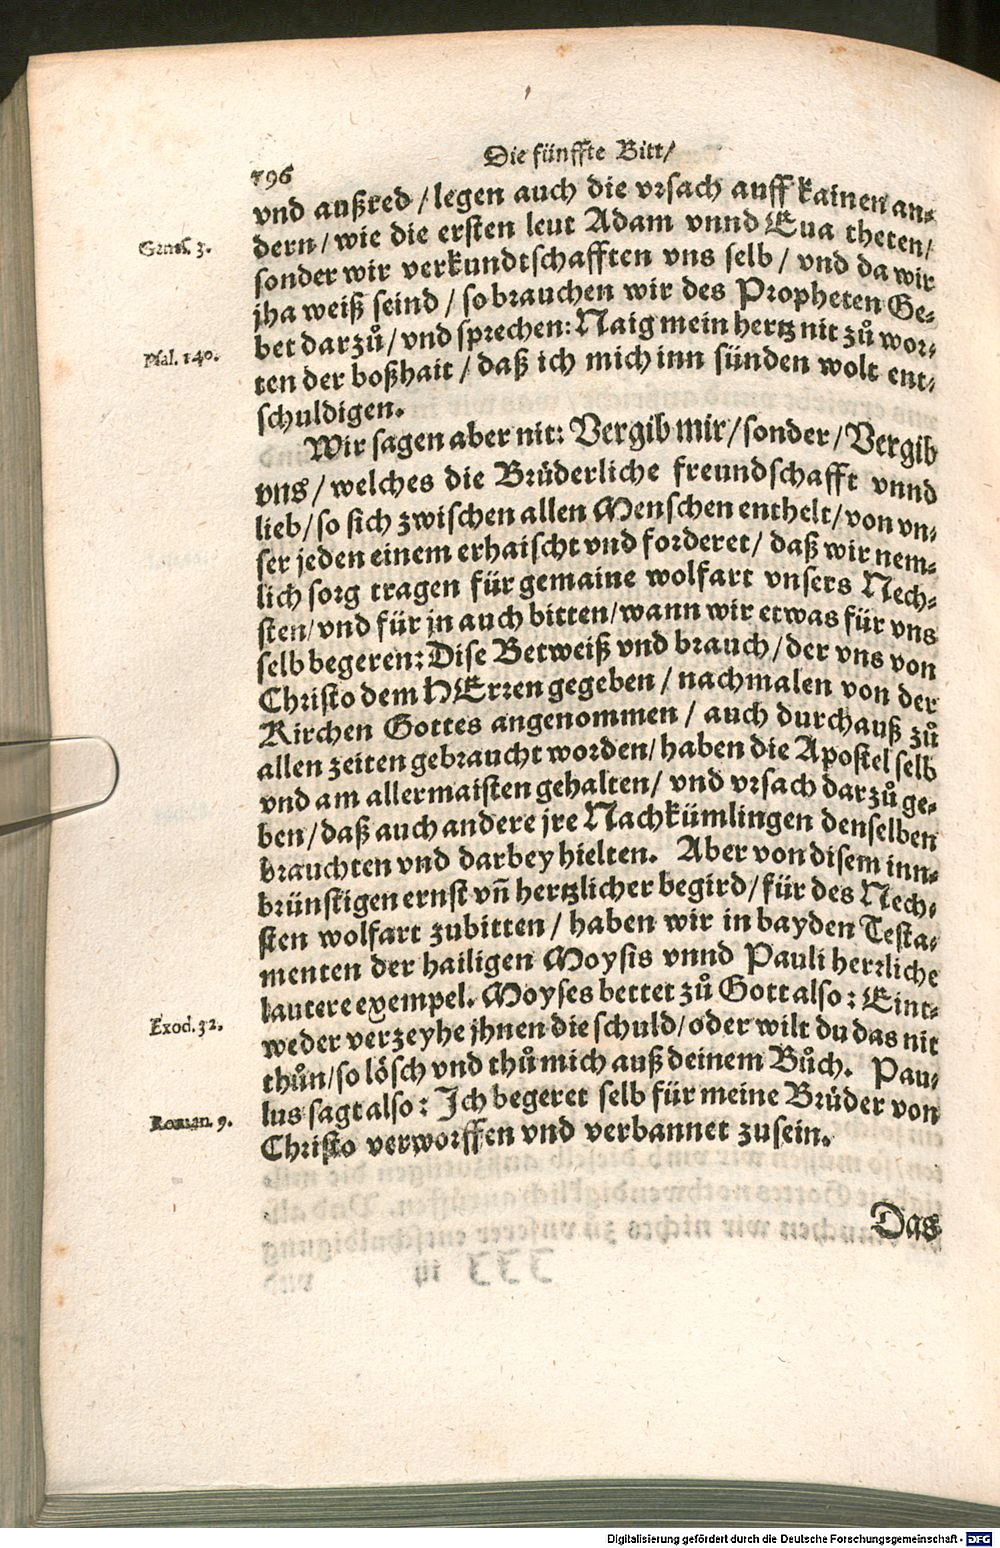 Die fünffte Bitt/
796
vnd außred / legen auch die vrsach auff kainen an⸗
dern / wie die ersten leut Adam vnnd Eua theten/
Genes. 3.
sonder wir verkundtschafften vns selb / vnd da wir
jha weiß seind / so brauchen wir des Propheten Ge⸗
bet darzů / vnd sprechen: Naig mein hertz nit zů wor⸗
Psal. 140.
ten der boßhait / daß ich mich inn sünden wolt ent⸗
schuldigen.
Wir sagen aber nit: Vergib mir / sonder / Vergib
vns / welches die Brüderliche freundschafft vnnd
lieb / so sich zwischen allen Menschen enthelt / von vn⸗
ser jeden einem erhaischt vnd forderet / daß wir nem⸗
lich sorg tragen für gemaine wolfart vnsers Nech⸗
sten / vnd für jn auch bitten / wann wir etwas für vns
selb begeren: Dise Betweiß vnd brauch / der vns von
Christo dem HErren gegeben / nachmalen von der
Kirchen Gottes angenommen / auch durchauß zů
allen zeiten gebraucht worden / haben die Apostel selb
vnd am allermaisten gehalten / vnd vrsach darzů ge⸗
ben / daß auch andere jre Nachkümlingen denselben
brauchten vnd darbey hielten. Aber von disem inn⸗
brünstigen ernst vñ hertzlicher begird / für des Nech⸗
sten wolfart zubitten / haben wir in bayden Testa⸗
menten der hailigen Moysis vnnd Pauli herrliche
lautere exempel. Moyses bettet zů Gott also: Eint⸗
Exod. 32.
weder verzeyhe jhnen die schuld / oder wilt du das nit
thůn / so lösch vnd thů mich auß deinem Bůch. Pau⸗
lus sagt also: Ich begeret selb für meine Brüder von
Roman. 9.
Christo verworffen vnd verbannet zusein.
Das
Digitalisierung gefördert durch die Deutsche Forschungsgemeinschaft - DFG